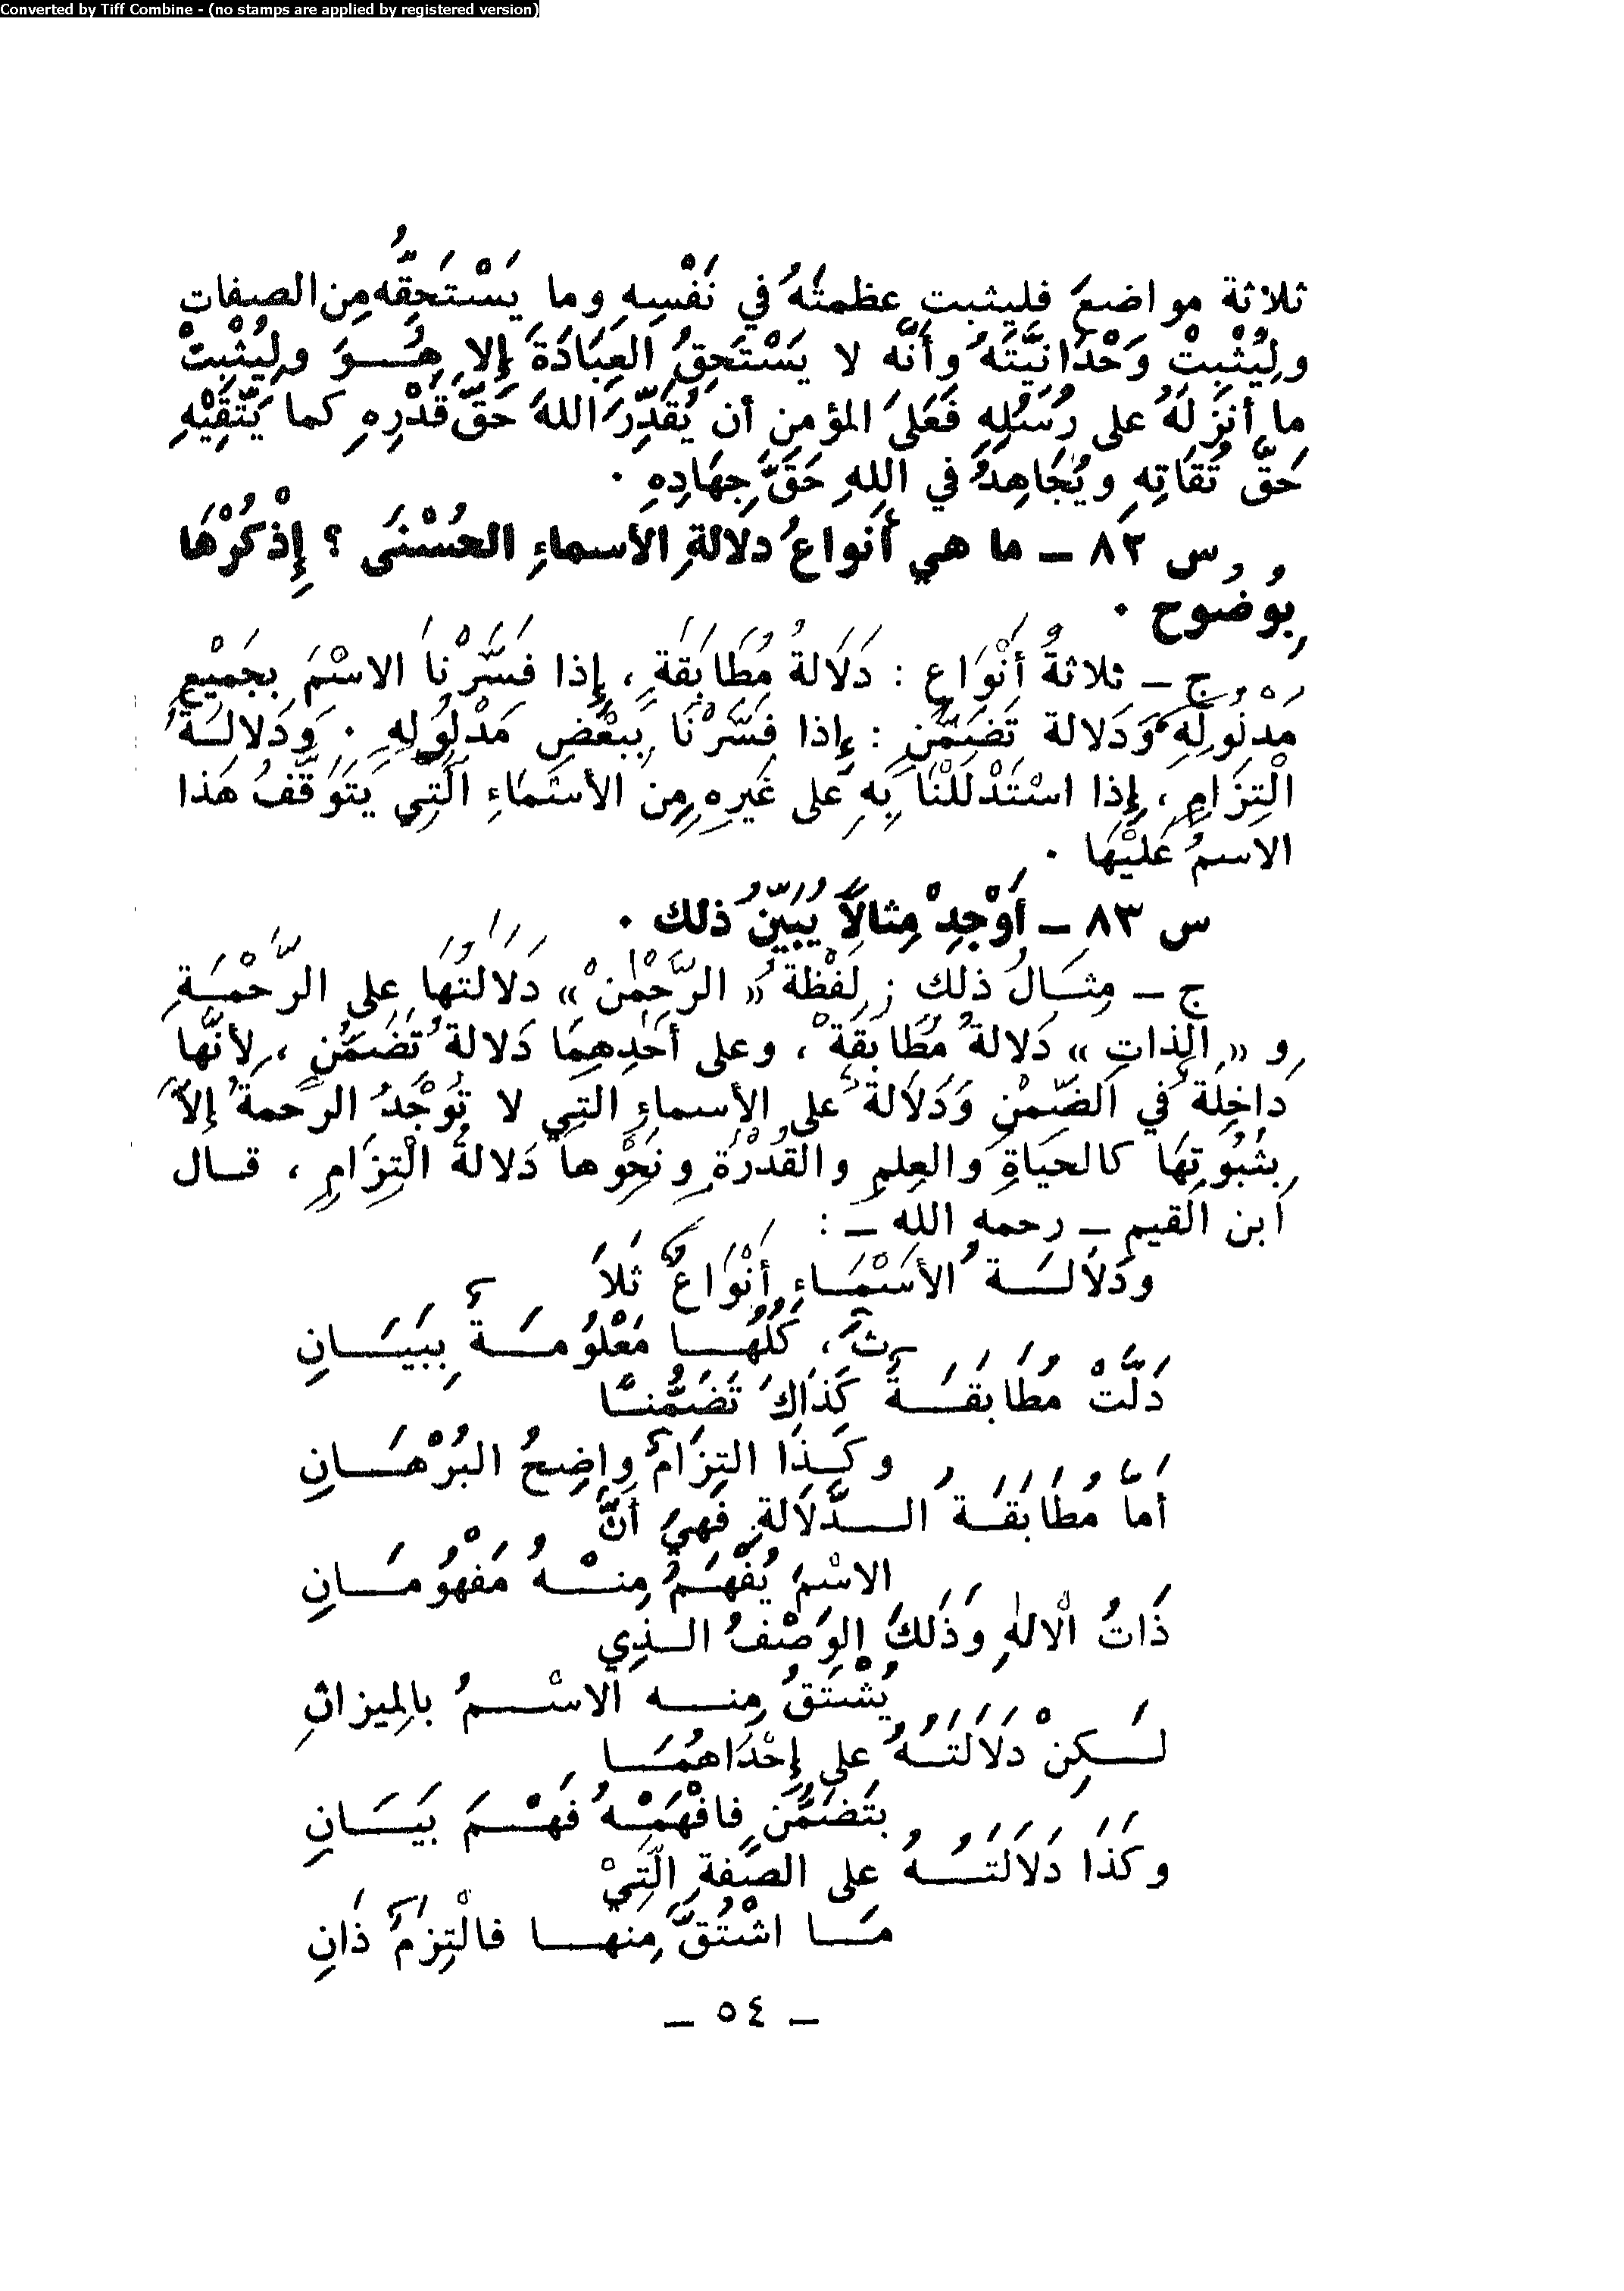 Converted by Tiff Combine - (no stamps are applied by registered version)
ثلاثة مواضعَ فليثبت عظمتَهُ في نَفْسِهِ وما يَسْتَحِقُّه مِن الصفات
ولِيُثْبِتْ وَحْدَانِيَّتَهُ وأنَّه لا يَسْتَحِقُ العِبَادَةَ إِلا هُـــوَ ولِيُثْبِتْ
ما أنزَلَهُ على رُسُلِهِ فَعَلَى المؤمِنِ أن يُقَدِّرَ اللهَ حَقَّ قَدْرِهِ كما يَتَّقِيْهِ
حَقَّ تُقَاتِهِ ويُجَاهِدُ في اللهِ حَقَّ جِهَادِهِ .
س ٨٢ – ما هي أنواعُ دلالةِ الأسماءِ الحُسْنَى ؟ إِذْكُرْهَا
بِوُضُوح .
ج – ثلاثةُ أَنْوَاعٍ : دَلَالةُ مُطَابَقَةٍ ، إِذا فَسَّرْنَا الاسْمَ بِجَمِيْعِ
مَدْلُولِهِ وَدَلالة تَضَمُّنٍ : إِذا فَسَّرْنَا بِبَعْضِ مَدْلُولِهِ . وَدَلالَـةُ
الْتِزَامِ ، إِذا اسْتَدْلَلْنَا بِهِ عَلى غَيرِهِ مِن الأسْمَاءِ الَّتِي يَتَوَقَّفُ هَذا
الاسمُ عَلَيْهَا .
س ٨٣ – أَوْجِدْ مِثالاً يُبَيِّنُ ذلك .
ج – مِثـَـالُ ذلك : لَفْظَةُ « الرَّحْمٰنْ » دَلالتُهَا على الرَّحْمَـةِ
و « الذاتِ » دَلالةُ مُطَابَقَةْ ، وعلى أَحَدِهِمَا دَلالةُ تَضَمُّنٍ ، لِأنَّها
دَاخِلَةٌ في الضِّمْنِ وَدَلَالةٌ على الأسماءِ التِي لا تُوْجَدُ الرَّحمةُ إلاَّ
بِثُبُوتِهَا كالحَيَاةِ والعِلمِ والقُدْرَةِ ونَحْوِها دَلالةُ الْتِزَامِ ، قــال
ابن القيم – رحمه الله – :
ودَلَالـَـــةُ الأَسْمَــاءِ أَنْوَاعٌ ثَلَا
ثٌ ، كُلُّهَــــا مَعْلُومـَـــةٌ بِبَيـَــانِ
دَلَّتْ مُطَابَقـَـــةً كَذَاكَ تَضَمُّنــًا
وكَــذَا التِزَامٌ واضِحُ البُرْهـَـــانِ
أمَّا مُطَابَقَــةُ الـــدَّلَالةِ فَهِيَ أَنَّ
الاسْمَ يُفْهَمُ مِنــْـهُ مَفْهُومـَــانِ
ذَاتُ الْالهِٰ وَذَلكَ الوَصْفُ الــذِي
يُشْتَقُ مِنـــه الاسْـــمُ بالمِيزانِ
لـَــكِنْ دَلَالَتـُـهُ على إِحْدَاهُمـَـــا
بتَضَمُّنٍ فافْهَمْـهُ فَهْــمَ بَيـَــانِ
وكَذَا دَلَالَتـُـــهُ على الصِّفةِ الَّتِيْ
مـَـا اشْتُقَّ مِنهـــا فالْتِزمٌ ذَانِ
– ٥٤ –